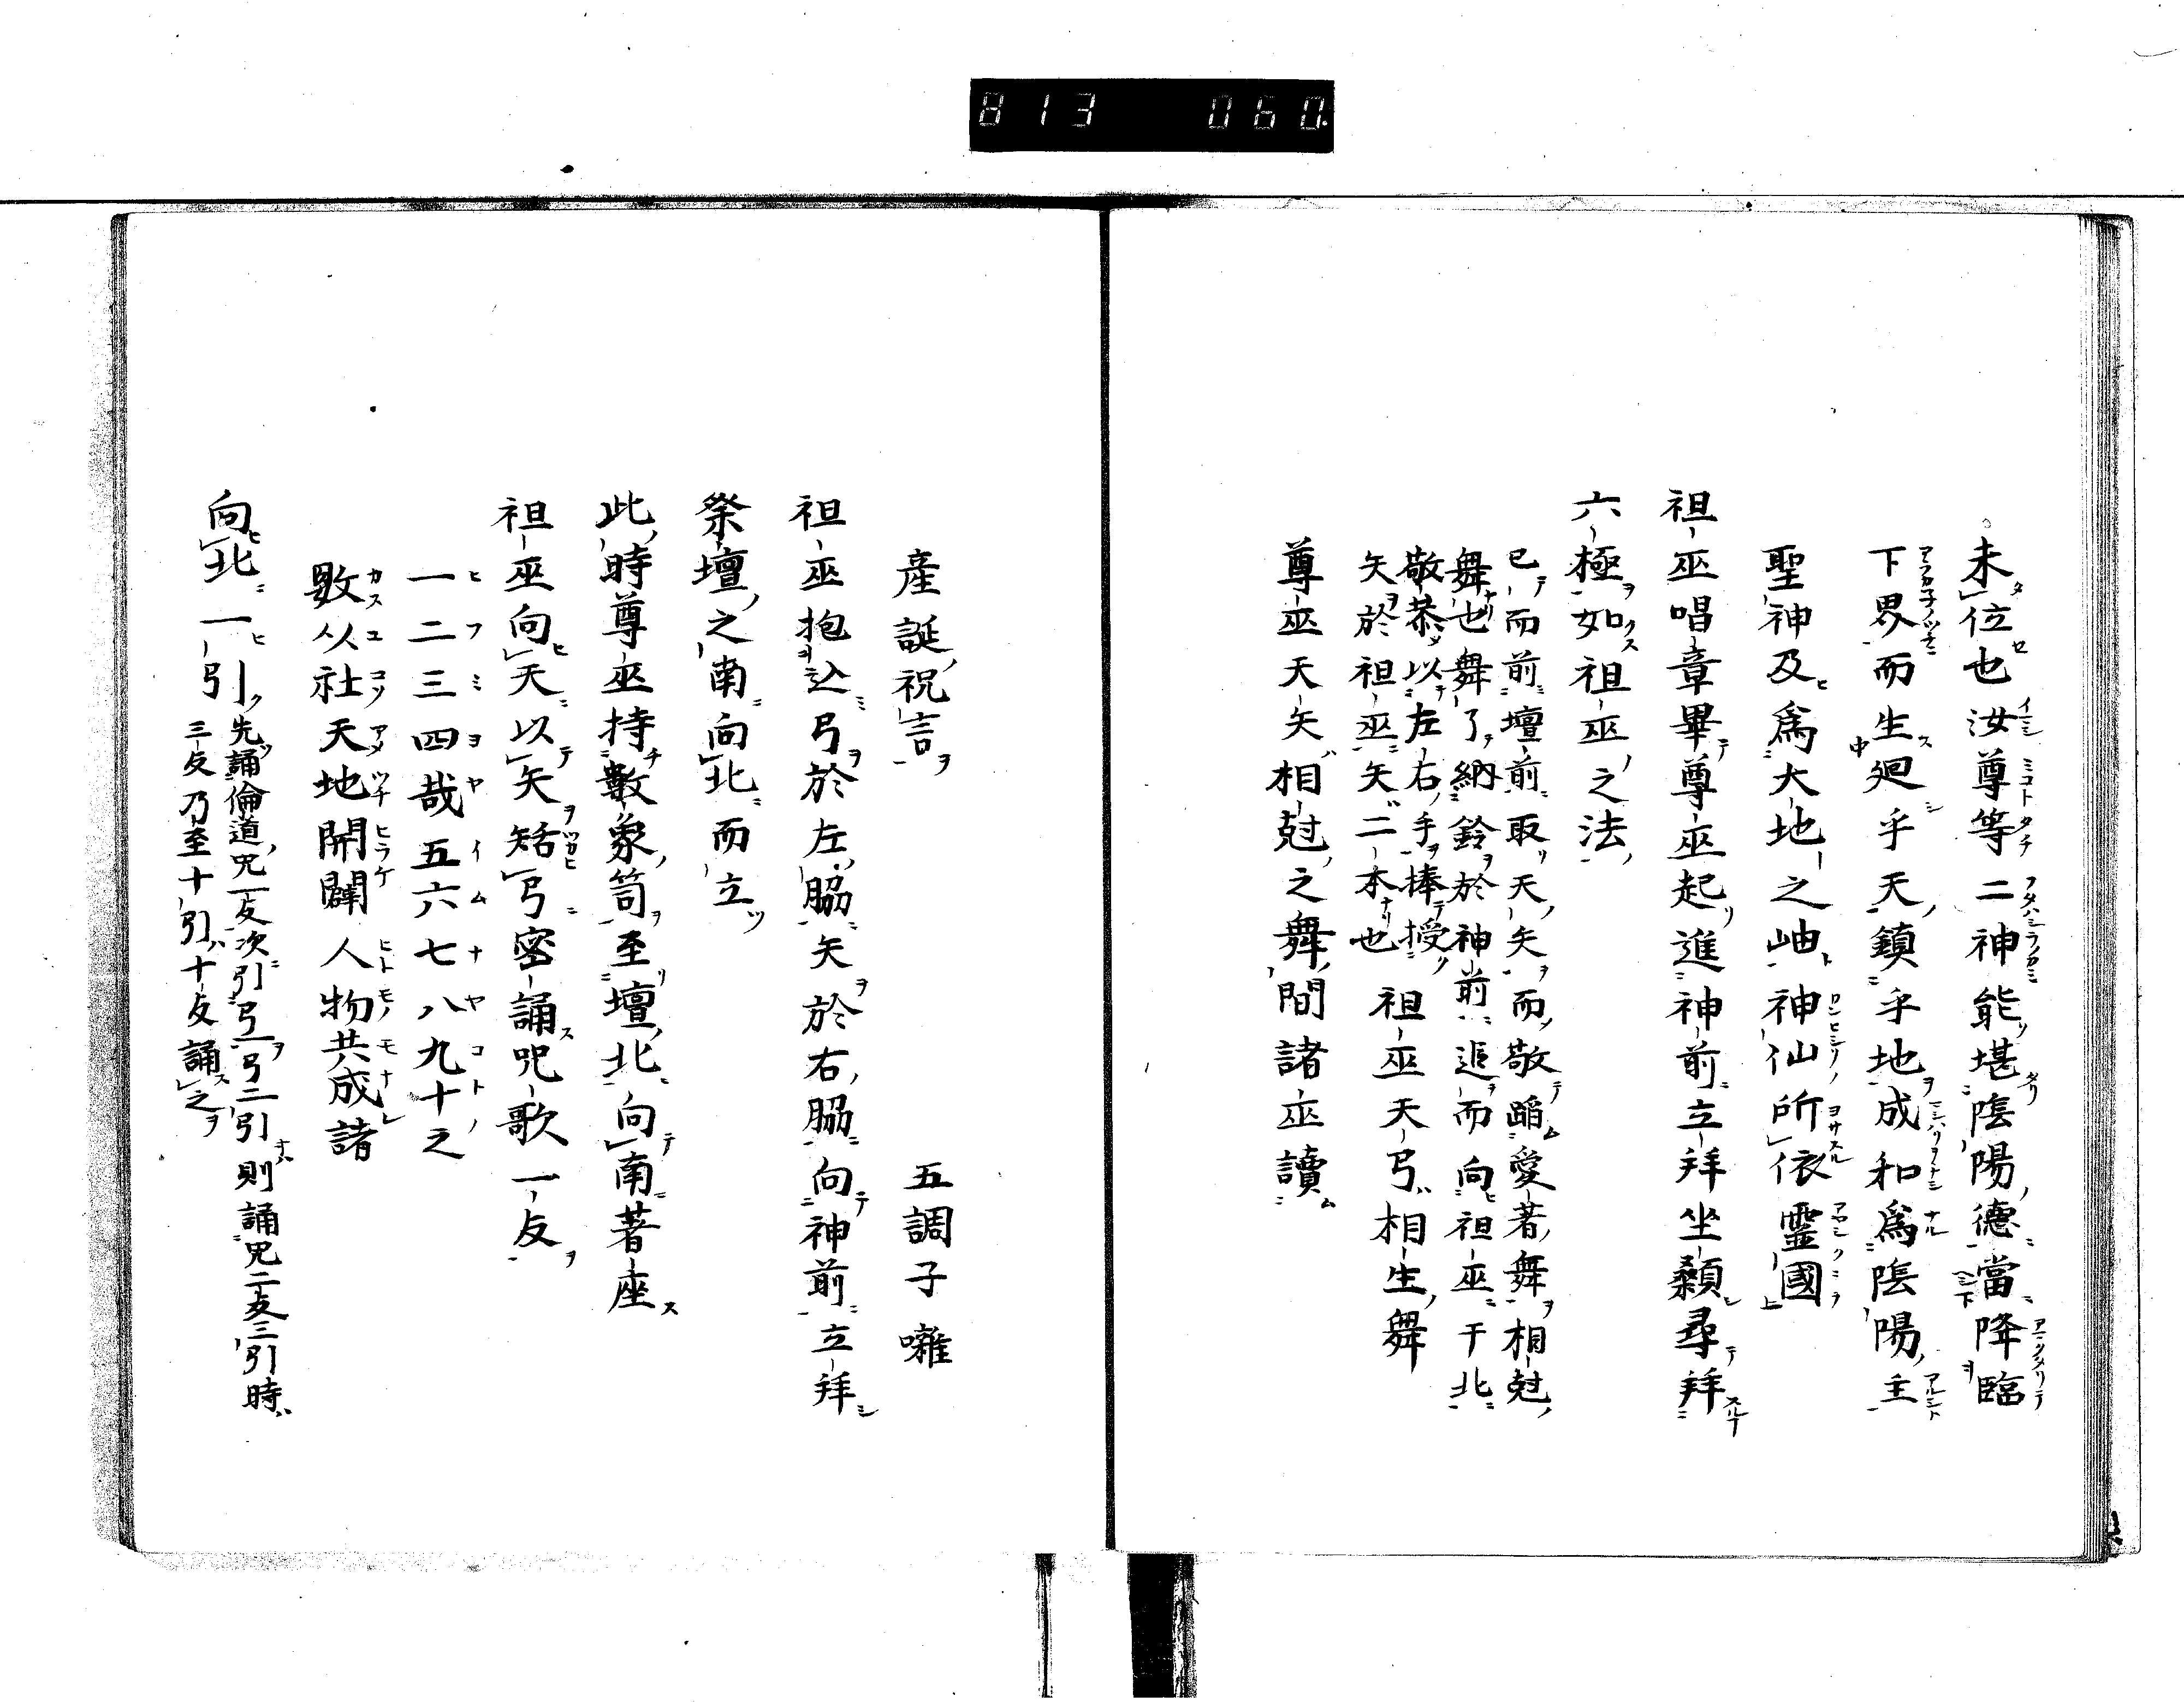 813 060
未位也汝尊等二神能堪陰陽德當降臨
下界而生廻乎天鎮乎地成和爲陰陽主
聖神及爲大地之岫神仙所依靈國
祖巫唱章畢尊巫起進神前立拜坐顙尋拜
六極如祖巫之法
已而前壇前取天矢而敬蹈愛著舞相尅
舞也舞了納鈴於神前退而向祖巫于北
敬恭以左右手捧授
矢於祖巫矢二本也 祖巫天弓相生舞
尊巫天矢相尅之舞間諸巫讀
産誕祝言 五調子囃
祖巫抱込弓於左脇矢於右脇向神前立拜
祭壇之南向北而立
此時尊巫持數象笥至壇北向南著座
祖巫向天以矢𥏮弓密誦咒歌一反
一二三四哉五六七八九十之
數以社天地開闢人物共成諸
向北一引
先誦倫道咒一反次引弓一弓二引則誦咒二反三引時
三反乃至十引十反誦之